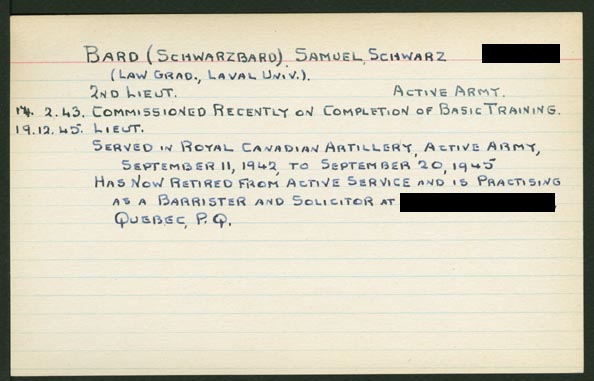 BARD (SCHWARZBARD), SAMUEL SCHWARZ
(LAW GRAD., LAVAL UNIV.).
2ND LIEUT. ACTIVE ARMY.
14. 2.43. COMMISSIONED RECENTLY ON COMPLETION OF BASIC TRAINING.
19.12.45. LIEUT.
SERVED IN ROYAL CANADIAN ARTILLERY, ACTIVE ARMY,
SEPTEMBER 11, 1942, TO SEPTEMBER 20, 1945
HAS NOW RETIRED FROM ACTIVE SERVICE AND IS PRACTISING
AS A BARRISTER AND SOLICITOR AT
QUEBEC, P.Q.